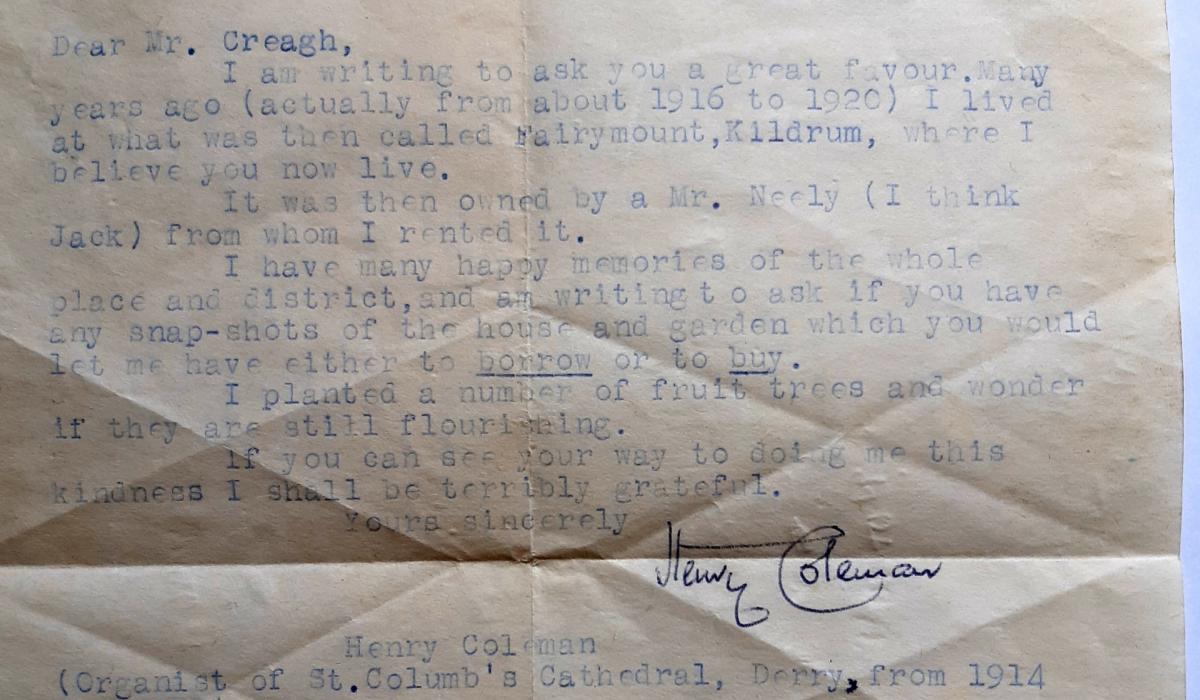 Dear Mr. Creagh,
I am writing to ask you a great favour.Many
years ago (actually from about 1916 to 1920) I lived
at what was then called Fairymount,Kildrum, where I
believe you now live.
It was then owned by a Mr. Neely (I think
Jack) from whom I rented it.
I have many happy memories of the whole
place and district,and am writing t o ask if you have
any snap-shots of the house and garden which you would
let me have either to borrow or to buy.
I planted a number of fruit trees and wonder
if they are still flourishing.
If you can see your way to doing me this
kindness I shall be terribly grateful.
Yours sincerely
Henry Coleman
Henry Coleman
(Organist of St.Columb's Cathedral, Derry, from 1914